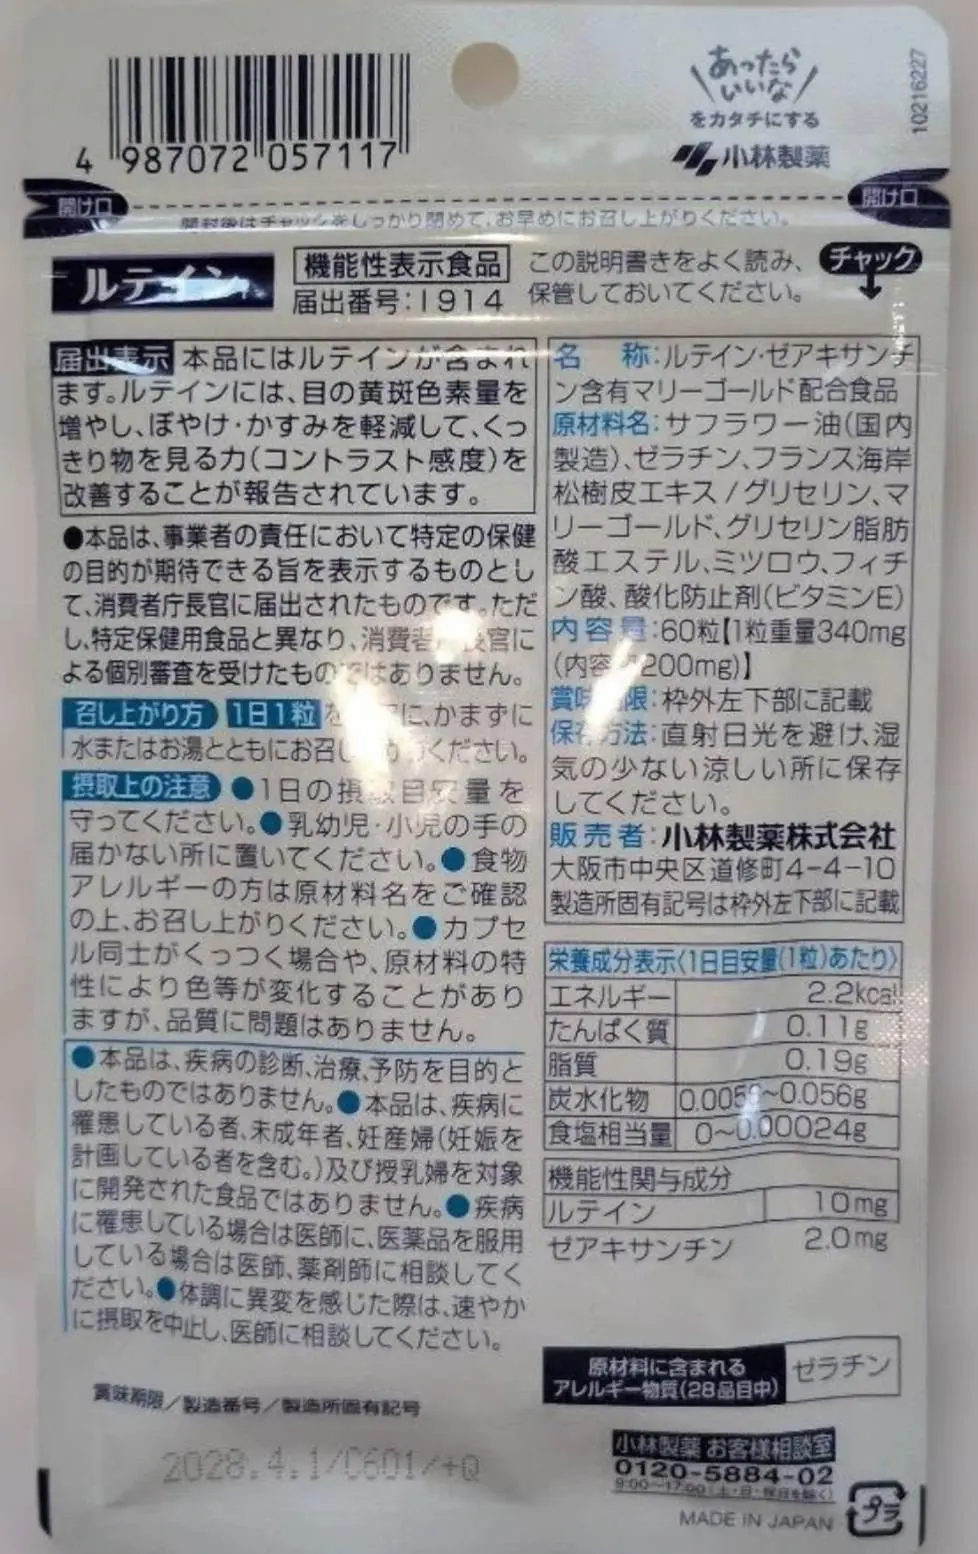 あったら
いいな
をカタチにする
小林製薬
10216227
4 987072 057117
開け口
開け口
開封後はチャックをしっかり閉めて、お早めにお召し上がりください。
ルテイン
機能性表示食品
届出番号:I914
この説明書きをよく読み、
保管しておいてください。
チャック
届出表示 本品にはルテインが含まれ
ます。ルテインには、目の黄斑色素量を
増やし、ぼやけ・かすみを軽減して、くっ
きり物を見る力(コントラスト感度)を
改善することが報告されています。
●本品は、事業者の責任において特定の保健
の目的が期待できる旨を表示するものとし
て、消費者庁長官に届出されたものです。ただ
し、特定保健用食品と異なり、消費者庁長官に
よる個別審査を受けたものではありません。
召し上がり方 1日1粒を に、かまずに
水またはお湯とともにお召し ください。
摂取上の注意 ●1日の摂取目安量を
守ってください。●乳幼児・小児の手の
届かない所に置いてください。●食物
アレルギーの方は原材料名をご確認
の上、お召し上がりください。●カプセ
ル同士がくっつく場合や、原材料の特
性により色等が変化することがあり
ますが、品質に問題はありません。
●本品は、疾病の診断、治療、予防を目的と
したものではありません。●本品は、疾病に
罹患している者、未成年者、妊産婦(妊娠を
計画している者を含む。)及び授乳婦を対象
に開発された食品ではありません。●疾病
に罹患している場合は医師に、医薬品を服用
している場合は医師、薬剤師に相談してく
ださい。●体調に異変を感じた際は、速やか
に摂取を中止し、医師に相談してください。
賞味期限/製造番号/製造所固有記号
2028.4.1/C601/+Q
名 称:ルテイン・ゼアキサンチ
ン含有マリーゴールド配合食品
原材料名:サフラワー油(国内
製造)、ゼラチン、フランス海岸
松樹皮エキス/グリセリン、マ
リーゴールド、グリセリン脂肪
酸エステル、ミツロウ、フィチ
ン酸、酸化防止剤(ビタミンE)
内容量:60粒【1粒重量340mg
(内容 200mg)】
賞味期限:枠外左下部に記載
保存方法:直射日光を避け、湿
気の少ない涼しい所に保存
してください。
販売者:小林製薬株式会社
大阪市中央区道修町4-4-10
製造所固有記号は枠外左下部に記載
栄養成分表示〈1日目安量(1粒)あたり〉
エネルギー 2.2kcal
たんぱく質 0.11g
脂質 0.19g
炭水化物 ~0.056g
食塩相当量 0~0.00024g
機能性関与成分
ルテイン 10mg
ゼアキサンチン 2.0mg
原材料に含まれる
アレルギー物質(28品目中)
ゼラチン
小林製薬 お客様相談室
0120-5884-02
9:00~17:00(土・日・祝日を除く)
MADE IN JAPAN
プラ